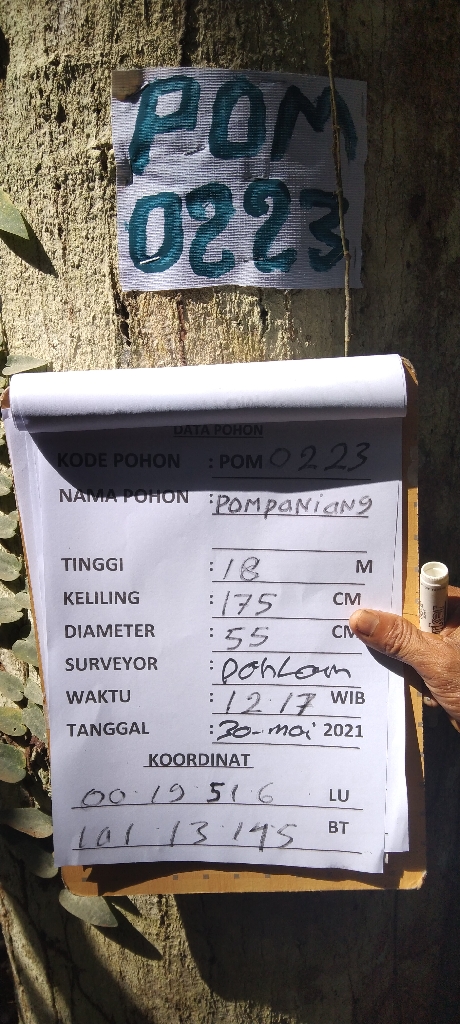 POM
0223
DATA POHON
KODE POHON : POM 0223
NAMA POHON : POMPANIANG
TINGGI : 18 M
KELILING : 175 CM
DIAMETER : 55 CM
SURVEYOR : Pohlom
WAKTU : 12.17 WIB
TANGGAL : 30-mai 2021
KOORDINAT
00 19 51 6 LU
101 13 145 BT